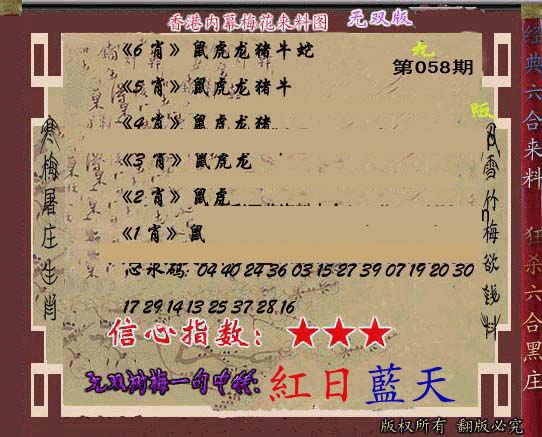 香港内幕梅花来料图 无双版
《6 肖》 鼠虎龙猪牛蛇
第058期
《5 肖》 鼠虎龙猪牛
《4 肖》 鼠虎龙猪
《3 肖》 鼠虎龙
《2 肖》 鼠虎
《1 肖》 鼠
心水码: 04 40 24 36 03 15 27 39 07 19 20 30
17 29 14 13 25 37 28 16
信心指数: ★★★
一句中特: 紅日藍天
寒梅屠庄生肖
风雪竹梅欲钱料
经典六合来料
狂杀六合黑庄
版权所有 翻版必究